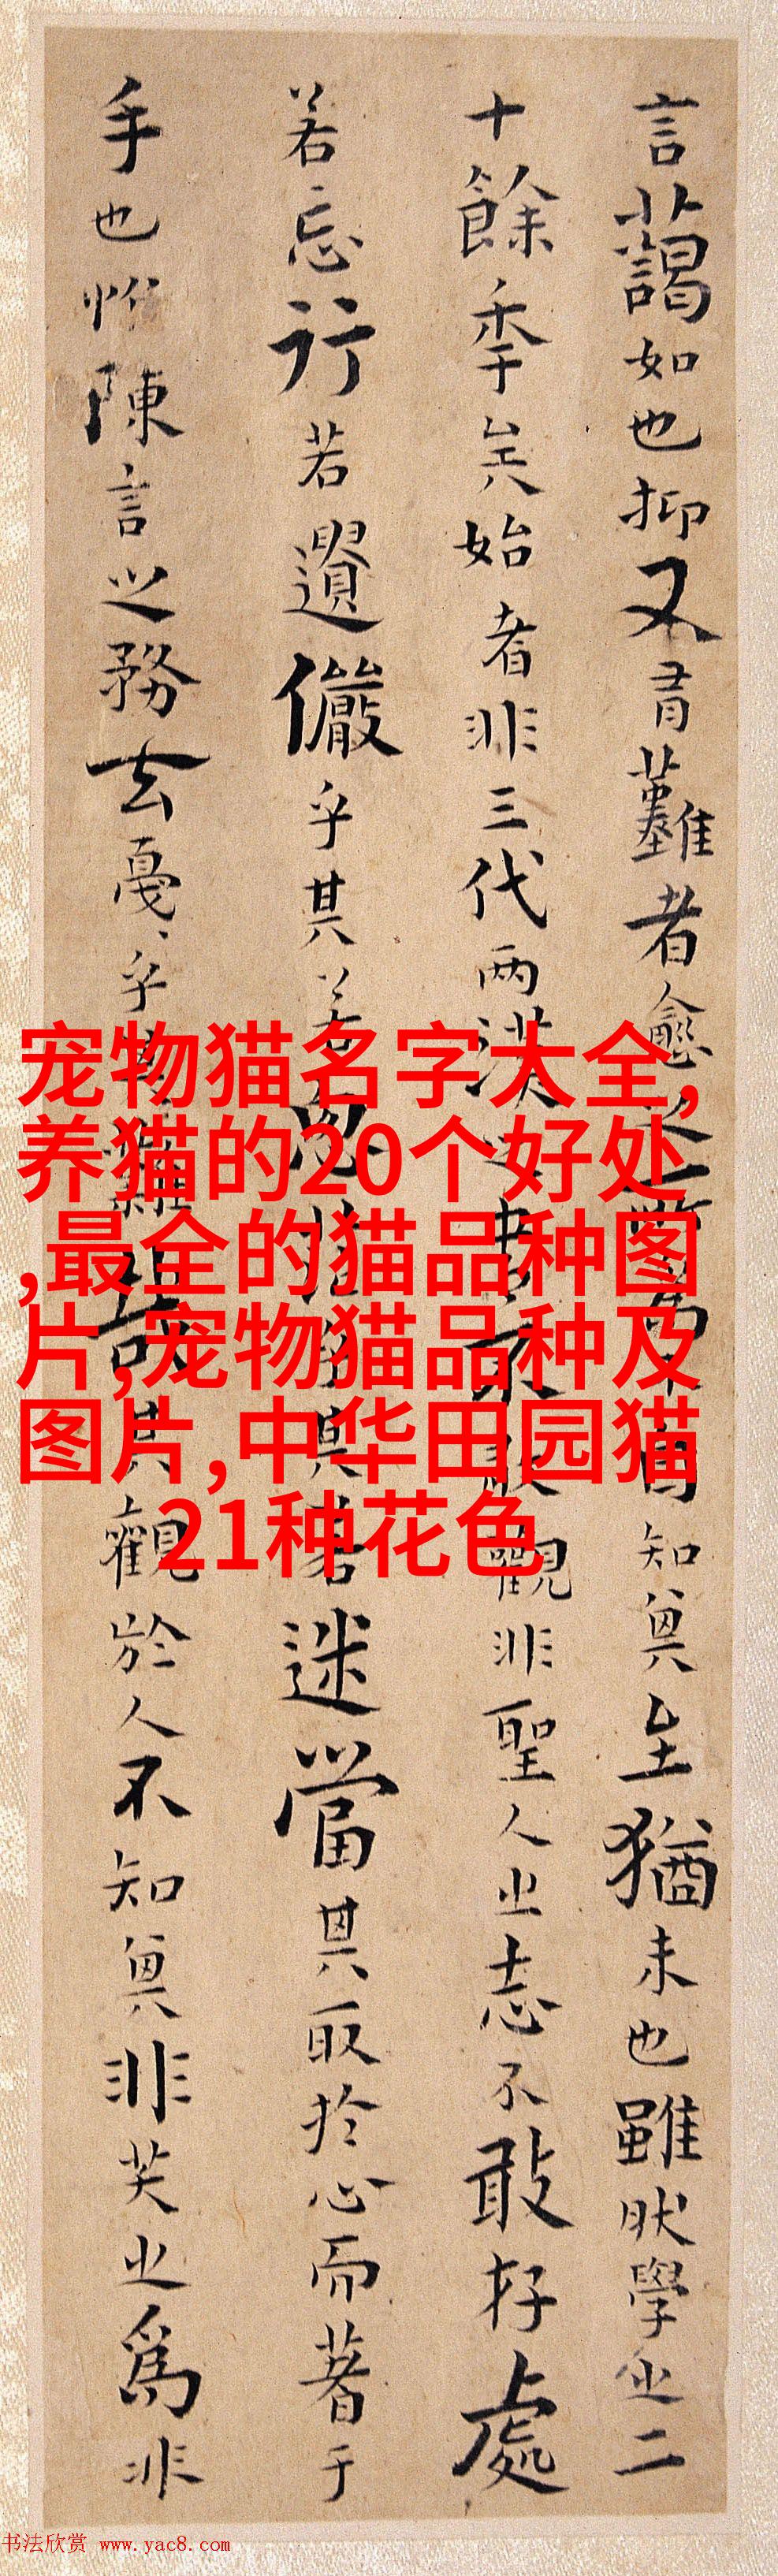 言藹如也抑又有難者愈之所為不自知其至猶未也雖然學之二
十餘年矣始者非三代兩漢之書不敢觀非聖人之志不敢存處
若忘行若遺儼乎其若思茫乎其若迷當其取於心而著于
手也惟陳言之務去戛戛乎其難哉其觀於人不知其非笑之為非
宠物猫名字大全,
养猫的20个好处
,最全的猫品种图
片,宠物猫品种及
图片,中华田园猫
21种花色
书法欣赏 www.yac8.com